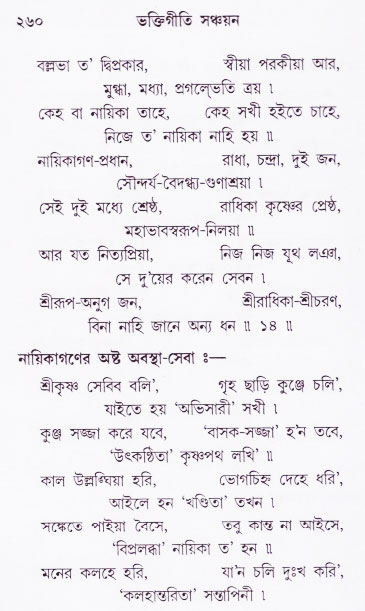 ২৬০ ভক্তিগীতি সঞ্চয়ন
বল্লভা ত’ দ্বিপ্রকার, স্বীয়া পরকীয়া আর,
মুগ্ধা, মধ্যা, প্রগল্ভেতি ত্রয় ৷
কেহ বা নায়িকা তাহে, কেহ সখী হইতে চাহে,
নিজে ত’ নায়িকা নাহি হয় ॥
নায়িকাগণ-প্রধান, রাধা, চন্দ্রা, দুই জন,
সৌন্দর্য-বৈদগ্ধ্য-গুণাশ্রয়া ৷
সেই দুই মধ্যে শ্রেষ্ঠ, রাধিকা কৃষ্ণের প্রেষ্ঠ,
মহাভাবস্বরূপ-নিলয়া ॥
আর যত নিত্যপ্রিয়া, নিজ নিজ যূথ লঞা,
সে দু’য়ের করেন সেবন ৷
শ্রীরূপ-অনুগ জন, শ্রীরাধিকা-শ্রীচরণ,
বিনা নাহি জানে অন্য ধন ॥ ১৪ ॥
নায়িকাগণের অষ্ট অবস্থা-সেবা ঃ—
শ্রীকৃষ্ণ সেবিব বলি’, গৃহ ছাড়ি কুঞ্জে চলি’,
যাইতে হয় ‘অভিসারী’ সখী ৷
কুঞ্জ সজ্জা করে যবে, ‘বাসক-সজ্জা’ হ’ন তবে,
‘উৎকণ্ঠিতা’ কৃষ্ণপথ লখি’ ॥
কাল উল্লঙ্ঘিয়া হরি, ভোগচিহ্ন দেহে ধরি’,
আইলে হন ‘খণ্ডিতা’ তখন ৷
সঙ্কেতে পাইয়া বৈসে, তবু কান্ত না আইসে,
‘বিপ্রলব্ধা’ নায়িকা ত’ হন ॥
মনের কলহে হরি, যা’ন চলি দুঃখ করি’,
‘কলহান্তরিতা’ সন্তাপিনী ৷